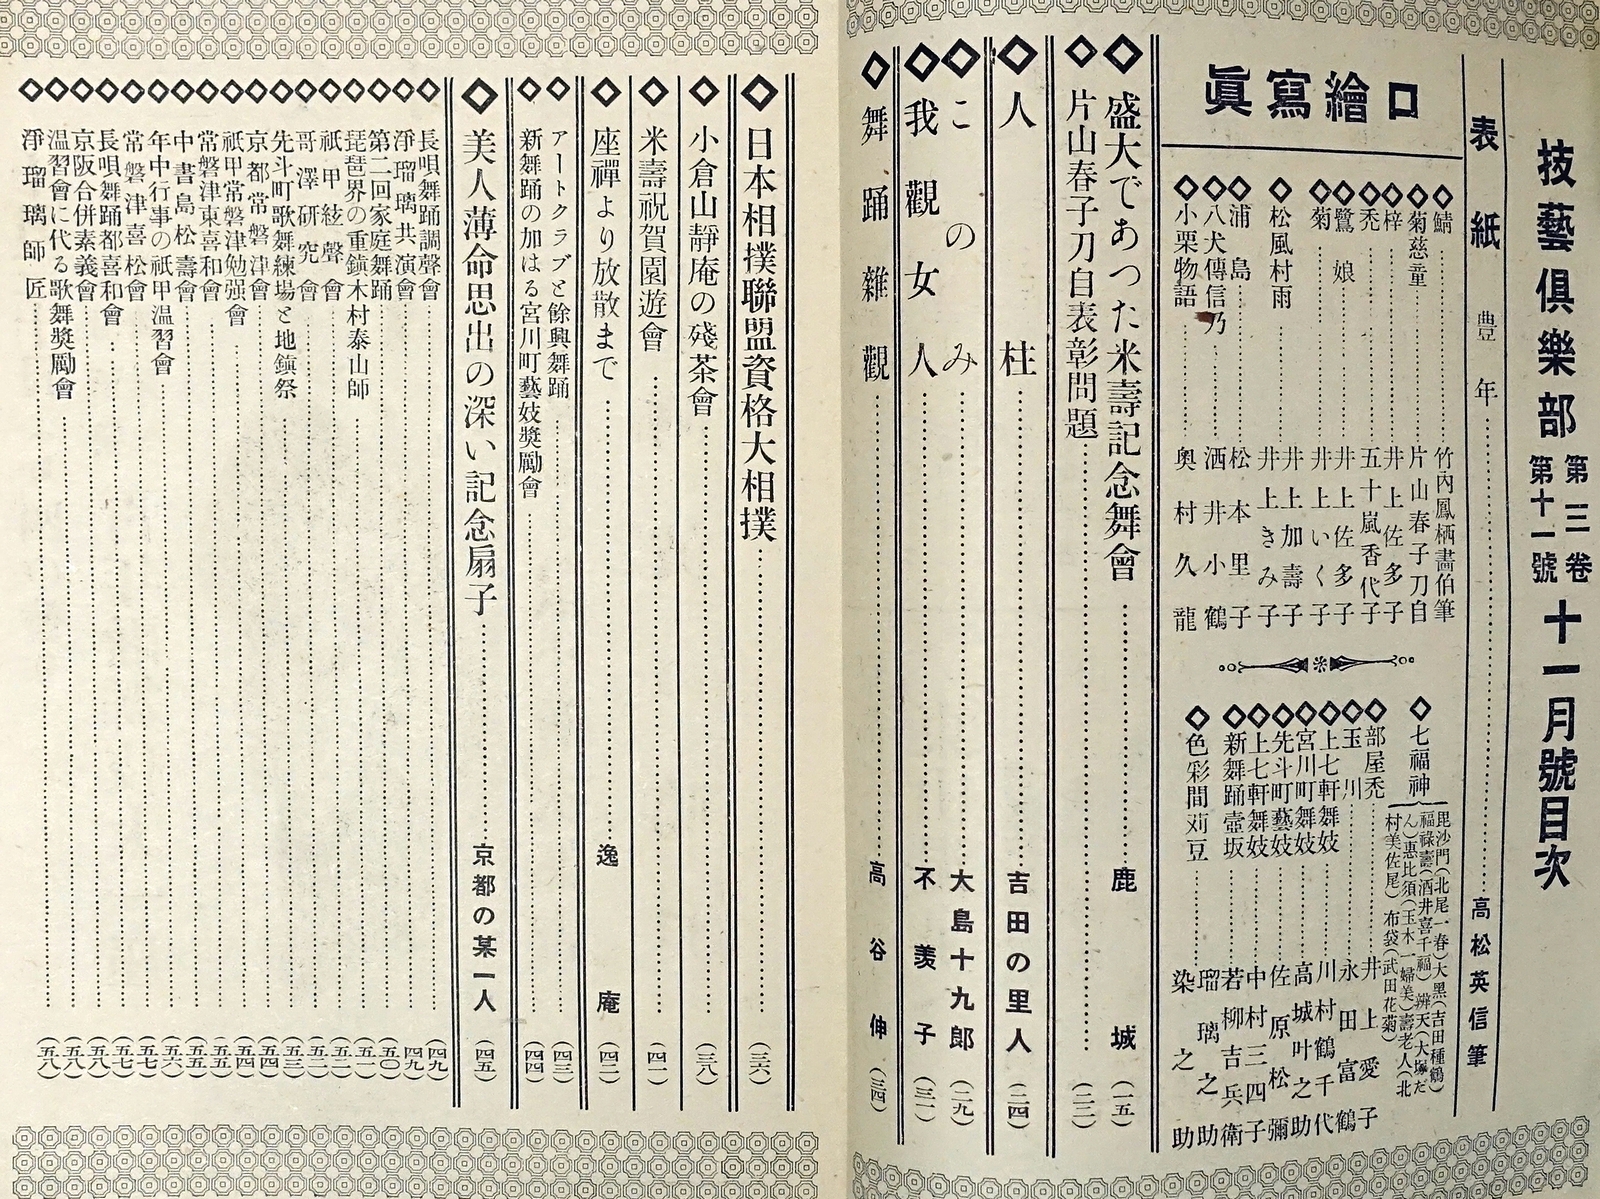 技藝俱樂部 第三卷 第十一號 十一月號目次
表紙 豊年 高松英信筆
口繪寫眞
鯖 竹內鳳栖畵伯筆
菊慈童 片山春子刀自
梓 井上佐多子
禿 五十嵐香代子
鷺娘 井上佐多子
菊 井上いく子
松風村雨 井上加壽子 井上きみ子
浦島 松本里子
八犬傳信乃 酒井小鶴
小栗物語 奧村久龍
七福神
毘沙門(北尾一春)大黑(吉田種鶴)
福祿壽(酒井喜千福) 辨天(大塚だ
ん)惠比須(玉木一婦美)壽老人(北
村美佐尾) 布袋(武田花菊)
部屋禿 井上愛子
玉川 永田富鶴
上七軒舞妓 川村鶴千代
宮川町舞妓 高城叶之助
先斗町藝妓 佐原松彌
上七軒舞妓 中村三四子
新舞踊壺坂 若柳吉兵衛
色彩間刈豆 瑠璃之助 染之助
盛大であつた米壽記念舞會 鹿城 (一五)
片山春子刀自表彰問題 (二二)
人柱 吉田の里人 (二四)
このみ 大島十九郎 (二九)
我觀女人 不羨子 (三一)
舞踊雜觀 高谷伸 (三四)
日本相撲聯盟資格大相撲 (三六)
小倉山靜庵の殘茶會 (三八)
米壽祝賀園遊會 (四一)
座禪より放散まで 逸庵 (四二)
アートクラブと餘興舞踊 (四三)
新舞踊の加はる宮川町藝妓奬勵會 (四四)
美人薄命思出の深い記念扇子 京都の某一人 (四五)
長唄舞踊調聲會 (四九)
淨瑠璃共演會 (四九)
第二回家庭舞踊 (五〇)
琵琶界の重鎭木村泰山師 (五一)
祇甲絃聲會 (五二)
哥澤研究會 (五二)
先斗町歌舞練場と地鎭祭 (五三)
京都常磐津會 (五四)
祇甲常磐津勉强會 (五四)
常磐津東喜和會 (五五)
中書島松壽會 (五五)
年中行事の祇甲溫習會 (五六)
常磐津喜松會 (五七)
長唄舞踊都喜和會 (五七)
京阪合併素義會 (五八)
溫習會に代る歌舞奬勵會 (五八)
淨瑠璃師匠 (五八)